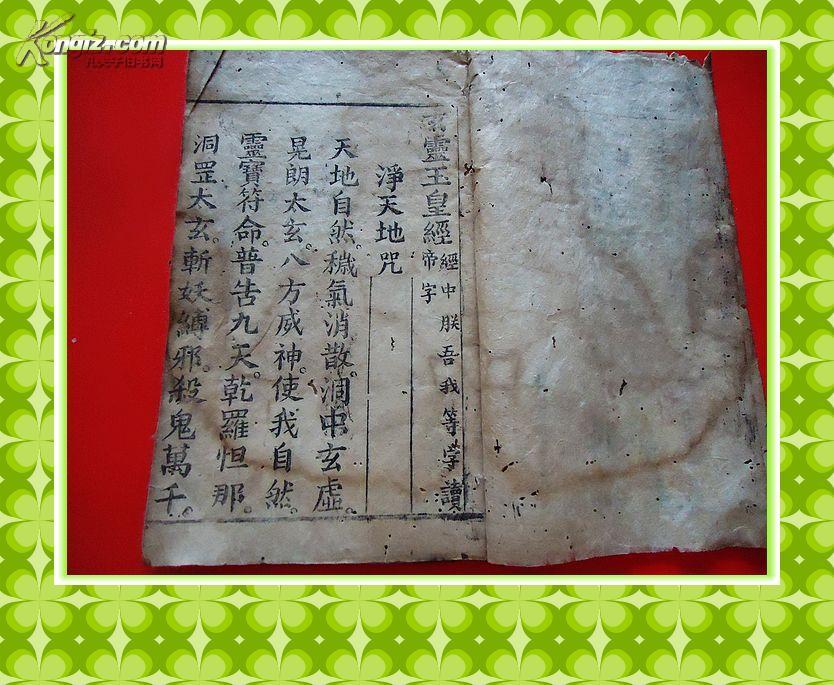 Kongfz.com
孔夫子旧书网
玄靈玉皇經 經中朕吾我等字讀
帝字
淨天地咒
天地自然。穢氣消散。洞中玄虛。
晃朗太玄。八方威神。使我自然。
靈寶符命。普告九天。乾羅怛那。
洞罡太玄。斬妖縛邪。殺鬼萬千。